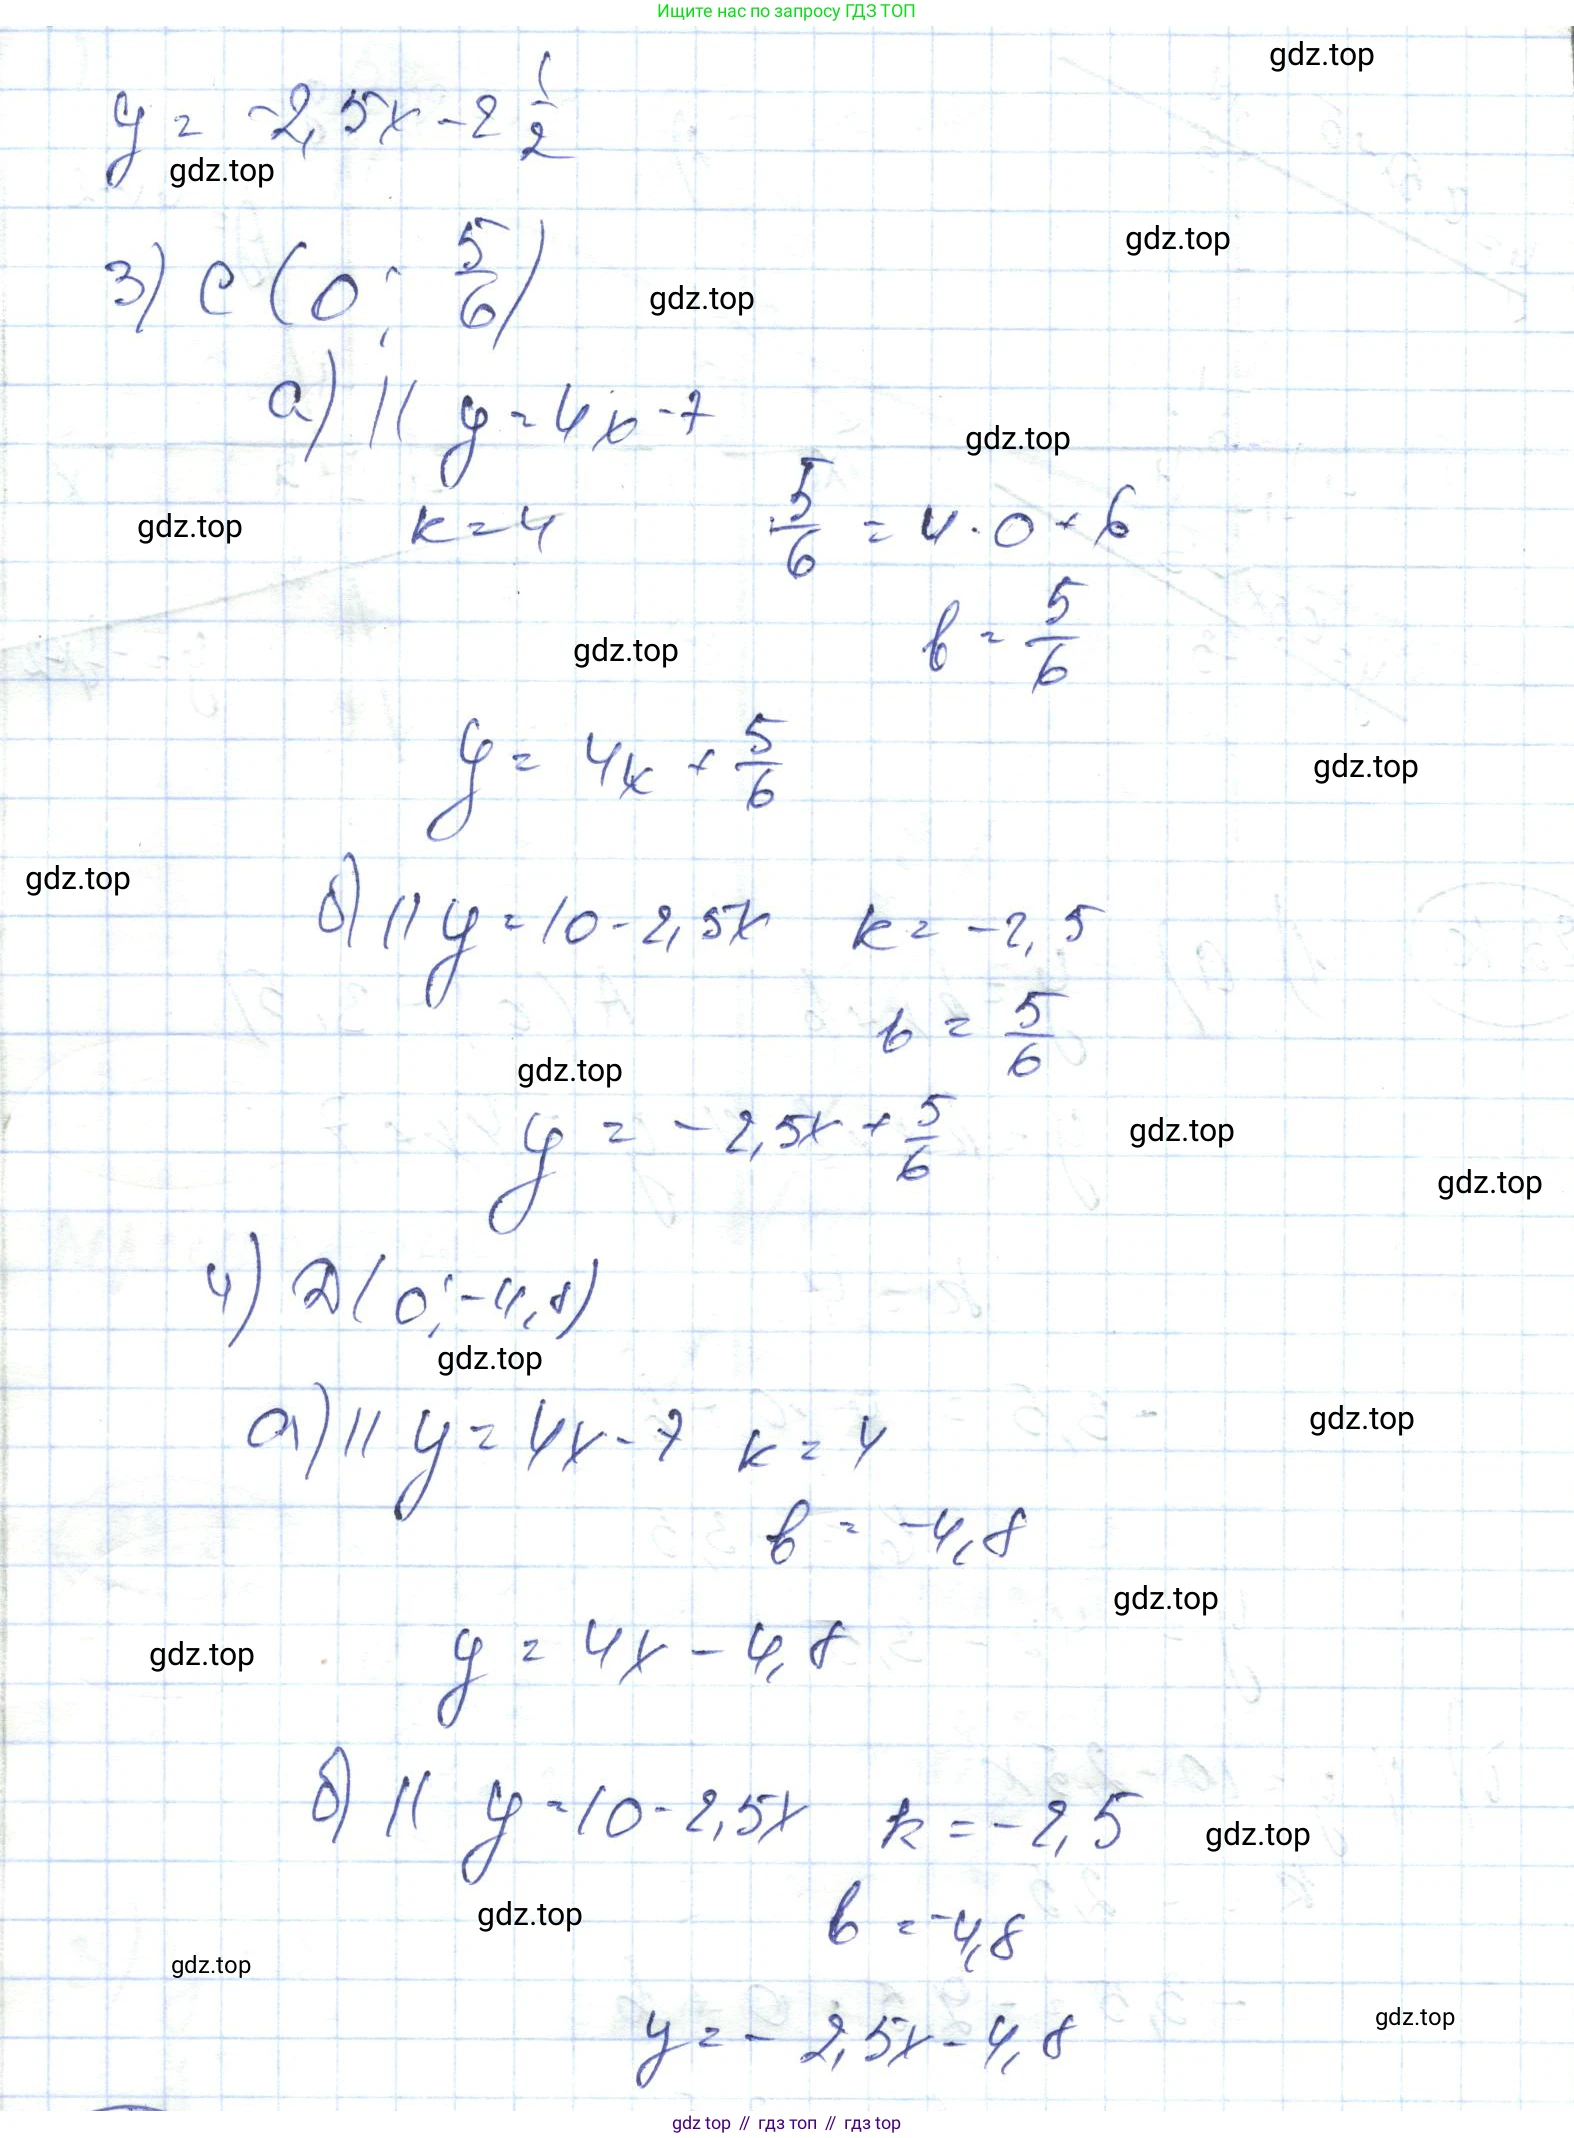 Ищите нас по запросу ГДЗ ТОП
gdz.top
y = -2,5x - 2 1/2
gdz.top
gdz.top
3) C (0; 5/6)
gdz.top
а) || y = 4x - 7
gdz.top
gdz.top
k = 4 5/6 = 4 · 0 + b
b = 5/6
gdz.top
y = 4x + 5/6
gdz.top
gdz.top
б) || y = 10 - 2,5x k = -2,5
b = 5/6
gdz.top
y = -2,5x + 5/6
gdz.top
gdz.top
4) D (0; -4,8)
gdz.top
а) || y = 4x - 7 k = 4
gdz.top
b = -4,8
gdz.top
y = 4x - 4,8
gdz.top
б) || y = 10 - 2,5x k = -2,5
gdz.top
gdz.top
b = -4,8
gdz.top
gdz.top
y = -2,5x - 4,8
gdz top // гдз топ // гдз top